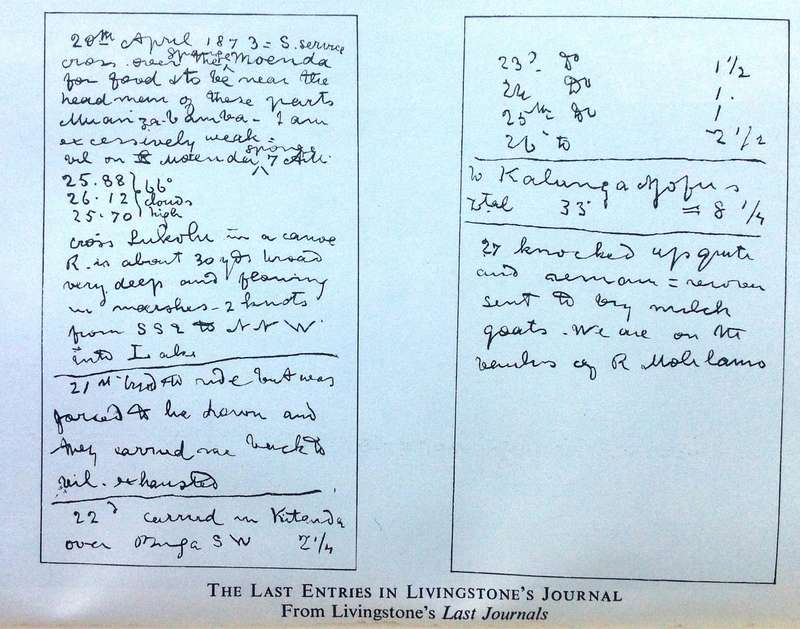 20th April 1873 = S. service
cross over sponge the Moenda
for food & to be near the
headman of these parts
Muanzabamba - I am
excessively weak =
vil on Moenda sponge 7 AM.
25.88 } 66°
26.12 } clouds
25.70 } high
cross Lukolu in a canoe
R. is about 30 yds broad
very deep and flowing
in marshes - 2 knots
from SSE to NNW
into Lake
21st tryed to ride but was
forced to lie down and
they carried me back to
vil. exhausted
22d carried in Kitanda
over Buga S W 2 1/4
23d Do 1 1/2
24 Do 1.
25th Do 1
26 to 2 1/2
to Kalunganjofus
total 33 = 8 1/4
27 knocked up quite
and remain = recover
sent to buy milch
goats. We are on the
banks of R Molilamo
THE LAST ENTRIES IN LIVINGSTONE'S JOURNAL
From Livingstone's Last Journals